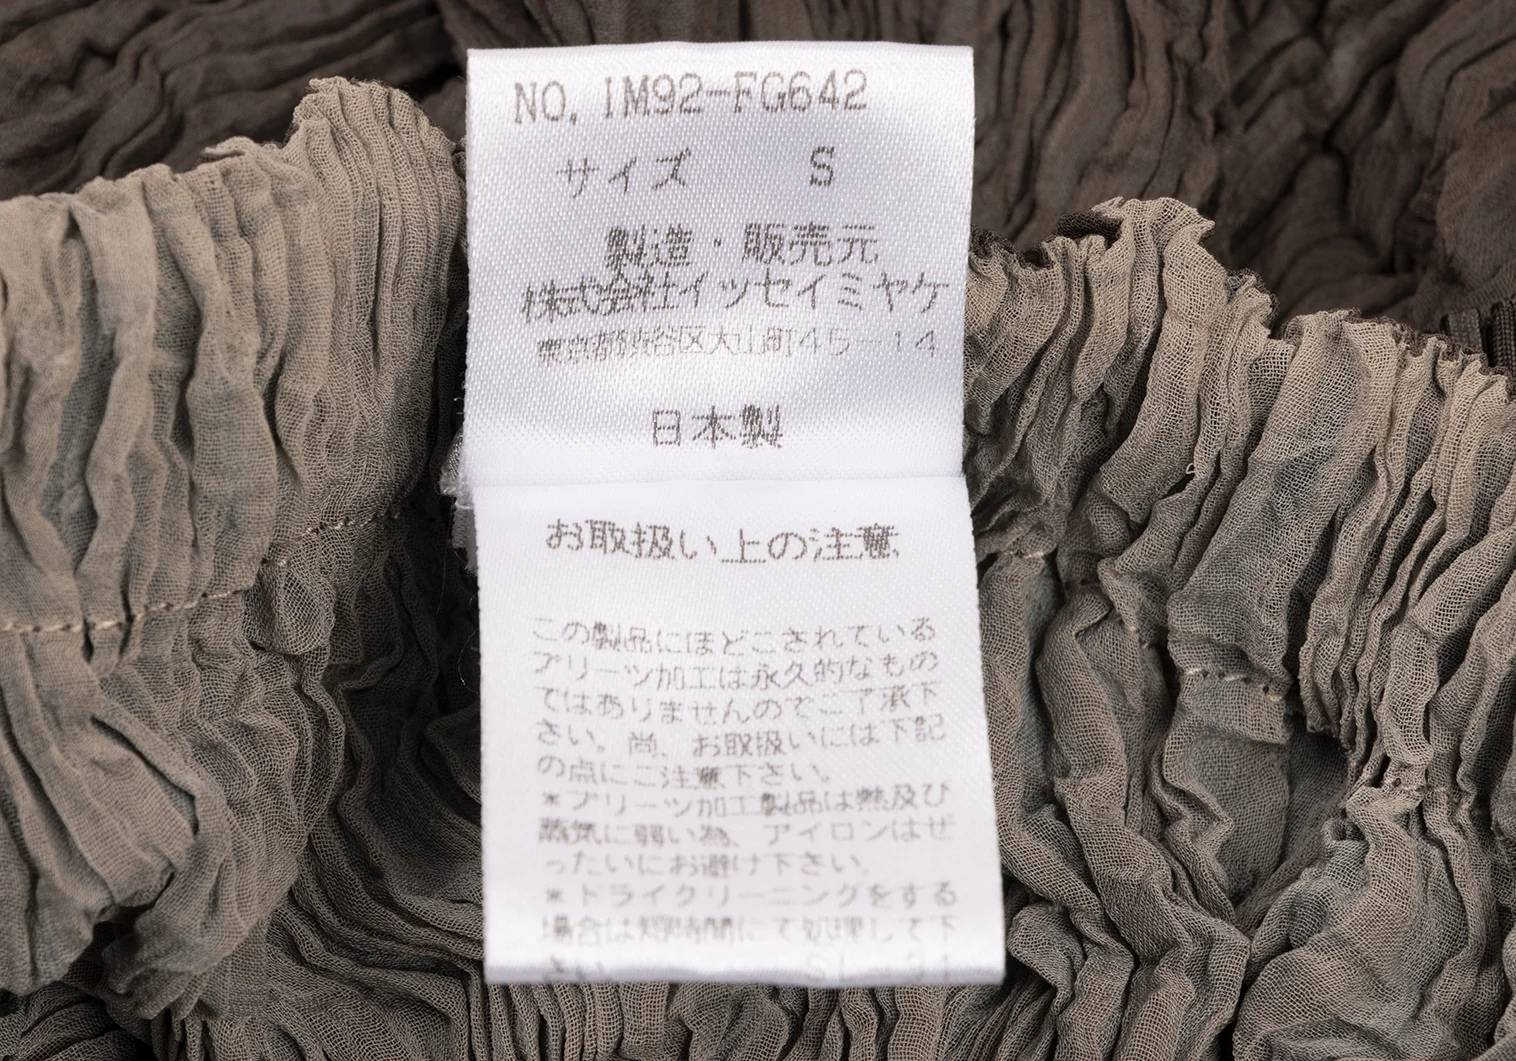 NO. IM92-FG642
サイズ S
製造・販売元
株式会社イッセイミヤケ
東京都渋谷区大山町45-14
日本製
お取扱い上の注意
この製品にほどこされている
プリーツ加工は永久的なもの
ではありませんのでご了承下
さい。尚、お取扱いには下記
の点にご注意下さい。
*プリーツ加工製品は熱及び
蒸気に弱い為、アイロンはぜ
ったいにお避け下さい。
*ドライクリーニングをする
場合は短時間にて処理して下
さい